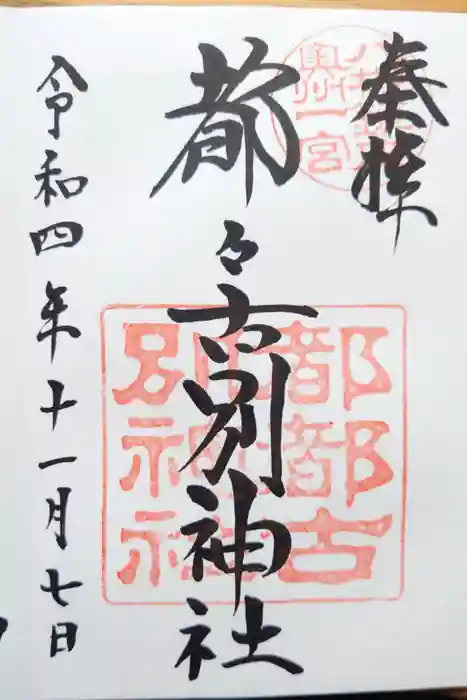 奉拝
都々古別神社
令和四年十一月七日
奥州一宮
都都古
別神社